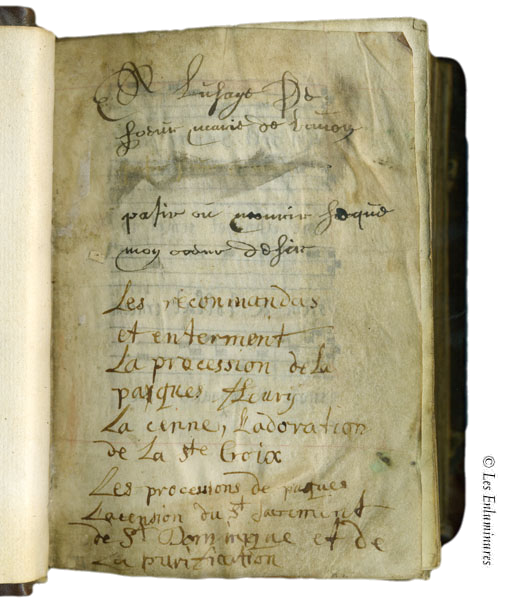 A Lusage De
soeur marie de Limon
pasir ou mourir se que
mon coeur desir
Les récommandas
et enterment
La procession de la
pasques fleury
La cenne, Ladoration
de La ste Croix
Les processions de pasques
Lacension du st sacrement
de st Dominique et de
La purification
© Les Enluminures